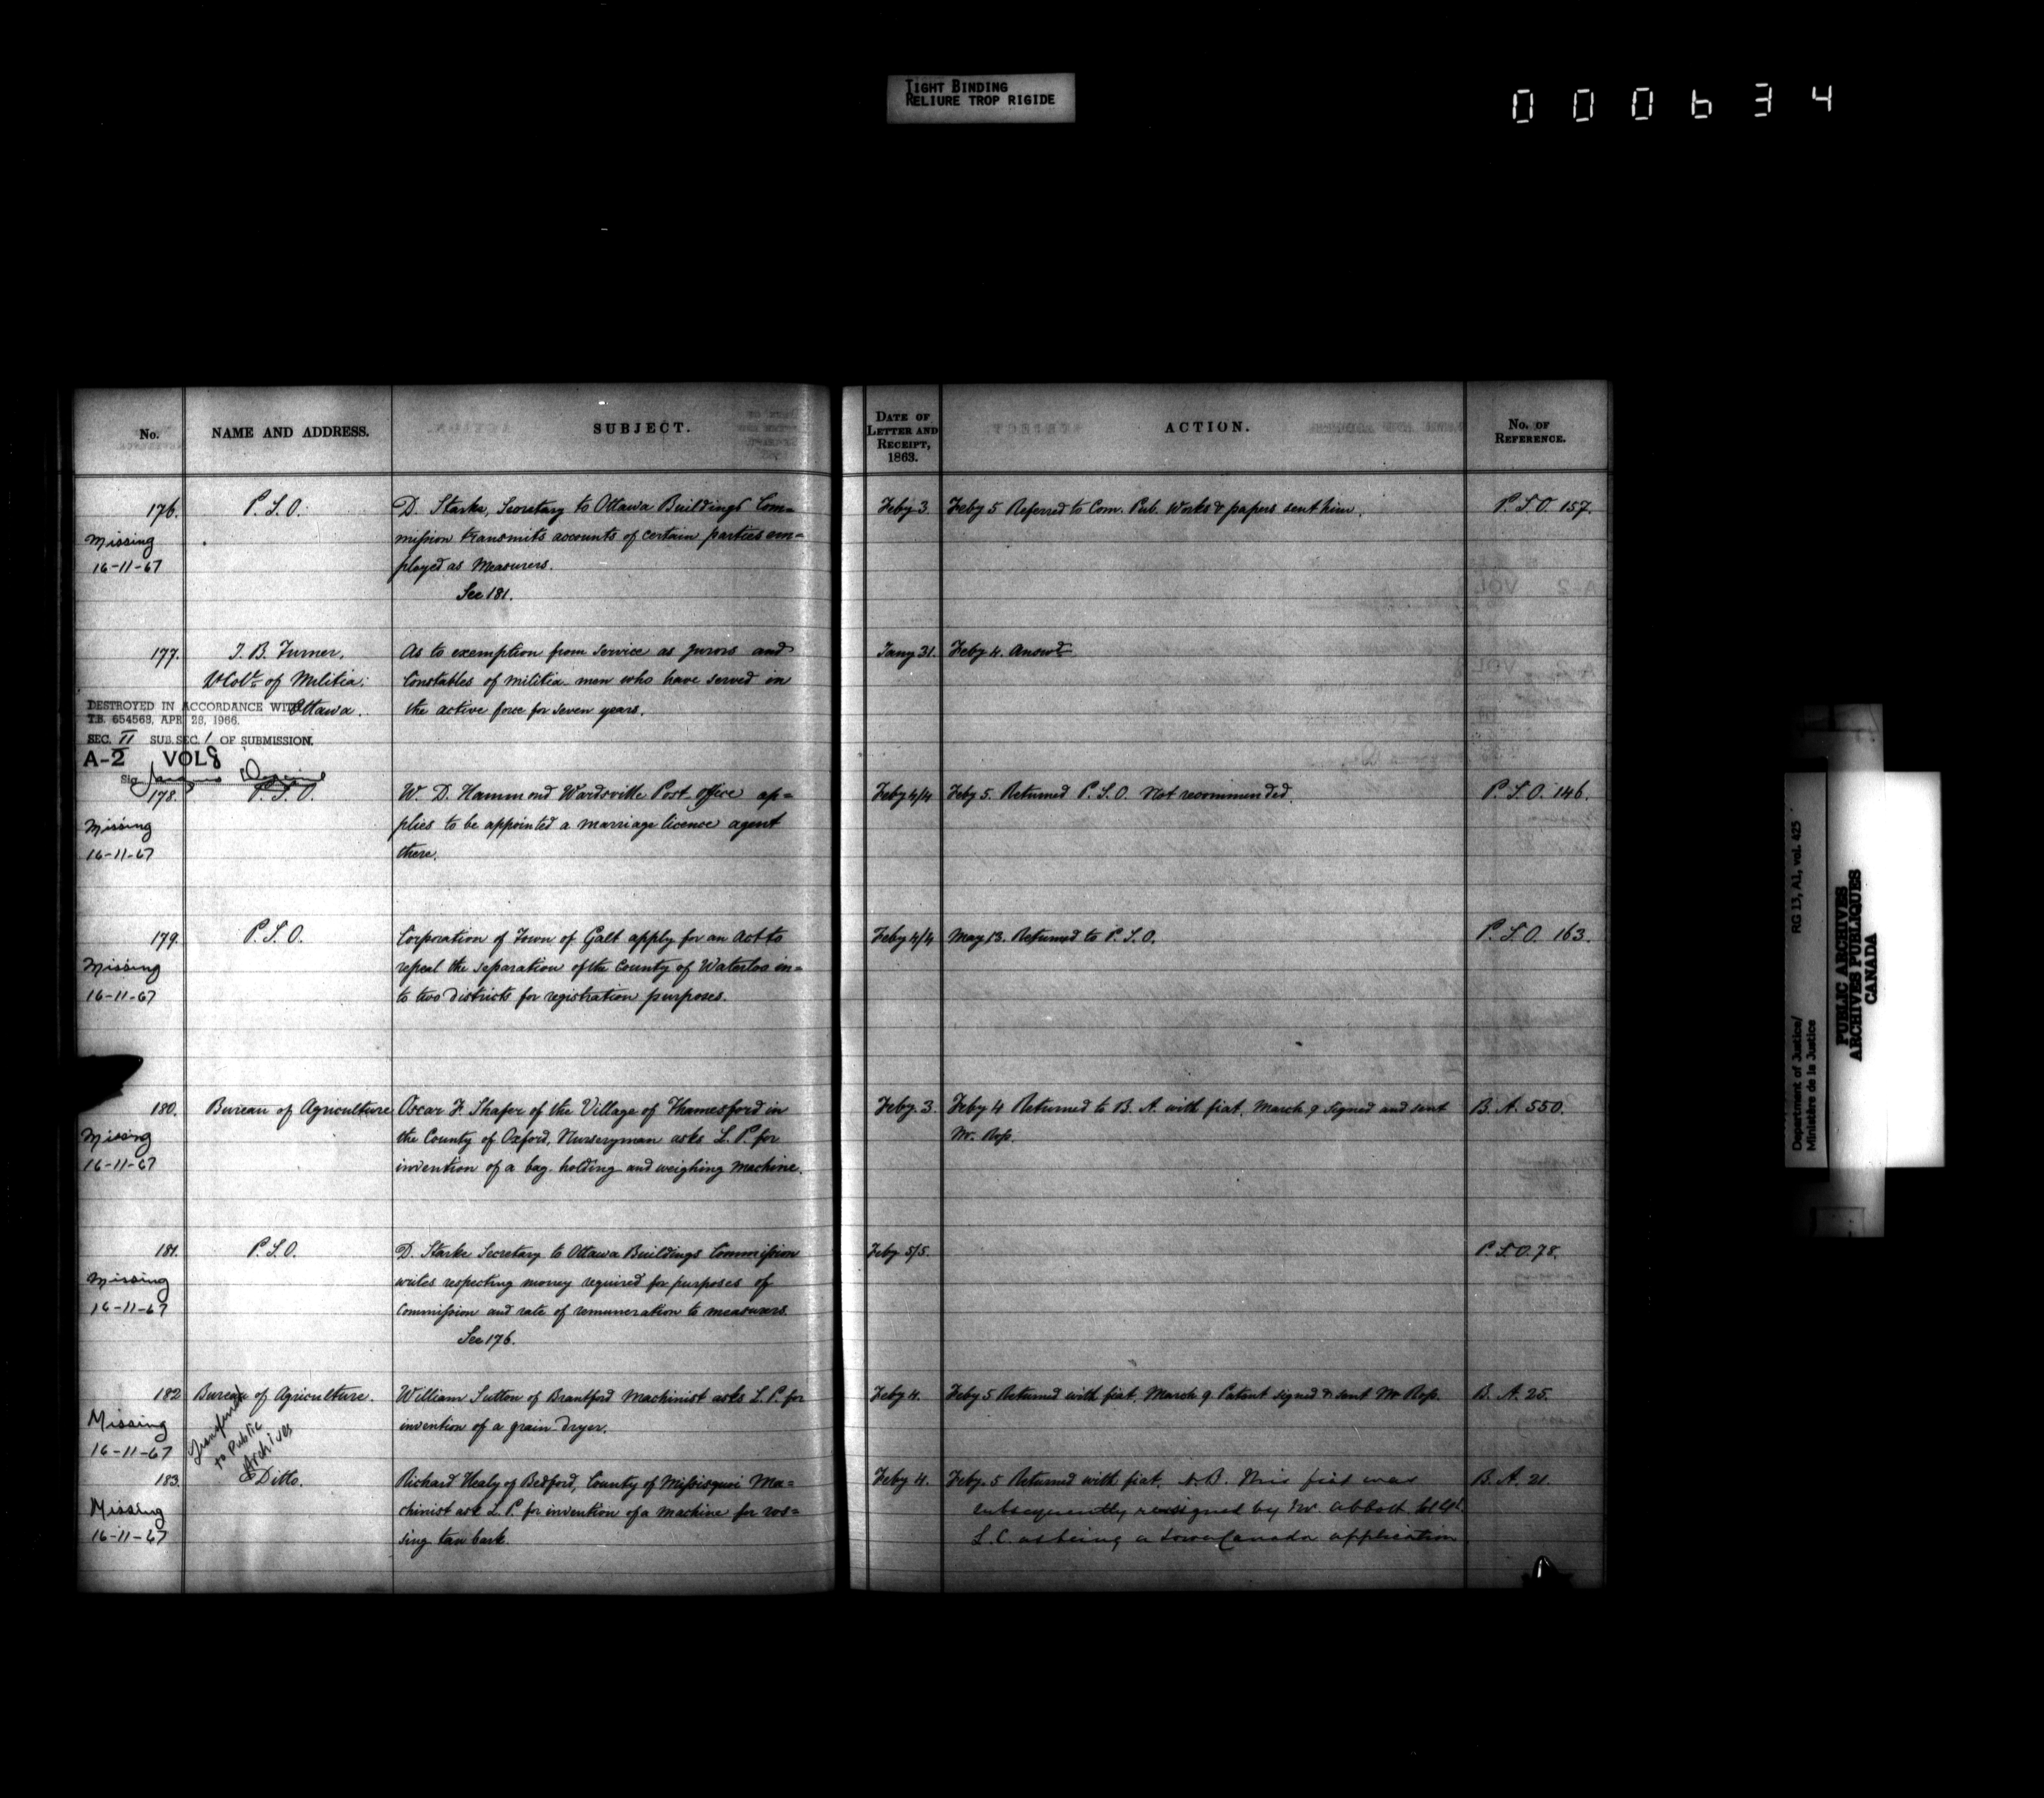 TIGHT BINDING
RELIURE TROP RIGIDE
000634
No.
NAME AND ADDRESS.
SUBJECT.
DATE OF
LETTER AND
RECEIPT,
1863.
ACTION.
No. OF
REFERENCE.
176. P.S.O. D. Starke, Secretary to Ottawa Buildings Com= Feby 3. Feby 5 Referred to Com. Pub. Works & papers sent him. P.S.O. 157.
Missing mission transmits accounts of certain parties em=
16-11-67 ployed as Measurers.
See 181.
177. J. B. Turner, As to exemption from service as jurors and Jany 31. Feby 4. Answd
Lt Colt. of Militia; Constables of militia men who have served in
Ottawa. the active force for seven years.
DESTROYED IN ACCORDANCE WITH
T.B. 654563, APR 28, 1966.
SEC. II SUB.SEC. 1 OF SUBMISSION.
A-2 VOL 8
Sig.
178. P.S.O. W. D. Hammond Wardsville Post office ap= Feby 4/4 Feby 5. Returned P.S.O. Not recommended. P.S.O. 146.
Missing plies to be appointed a marriage licence agent
16-11-67 there.
179. P.S.O. Corporation of Town of Galt apply for an Act to Feby 4/4 May 13. Returned to P.S.O. P.S.O. 163.
Missing repeal the separation of the County of Waterloo in=
16-11-67 to two districts for registration purposes.
180. Bureau of Agriculture Oscar F. Shafer of the Village of Thamesford in Feby. 3 Feby 4 Returned to B. A. with fiat. March 9 signed and sent B. A. 550.
Missing the County of Oxford, Nurseryman asks L. P. for Mr. Ross.
16-11-67 invention of a bag-holding and weighing machine.
181. P.S.O. D. Starke Secretary to Ottawa Buildings Commission Feby 5/5. P.S.O. 78.
Missing writes respecting money required for purposes of
16-11-67 Commission and rate of remuneration to measurers.
See 176.
182 Bureau of Agriculture. William Sutton of Brantford Machinist asks L. P. for Feby 4. Feby 5 Returned with fiat. March 9. Patent signed & sent Mr Ross. B. A. 25.
Missing invention of a grain-dryer.
16-11-67
Transferred
to Public
Archives
183. Ditto. Richard Healy of Bedford, County of Missisquoi Ma= Feby 4. Feby. 5 Returned with fiat. N.B. This fiat was B. A. 21.
Missing chinist ask L. P. for invention of a machine for ros= subsequently resigned by Mr. Abbott Sol Gl.
16-11-67 sing tan bark. L.C. as being a Lower Canada application
Department of Justice/ RG 13, A1, vol. 425
Ministère de la Justice
PUBLIC ARCHIVES
ARCHIVES PUBLIQUES
CANADA